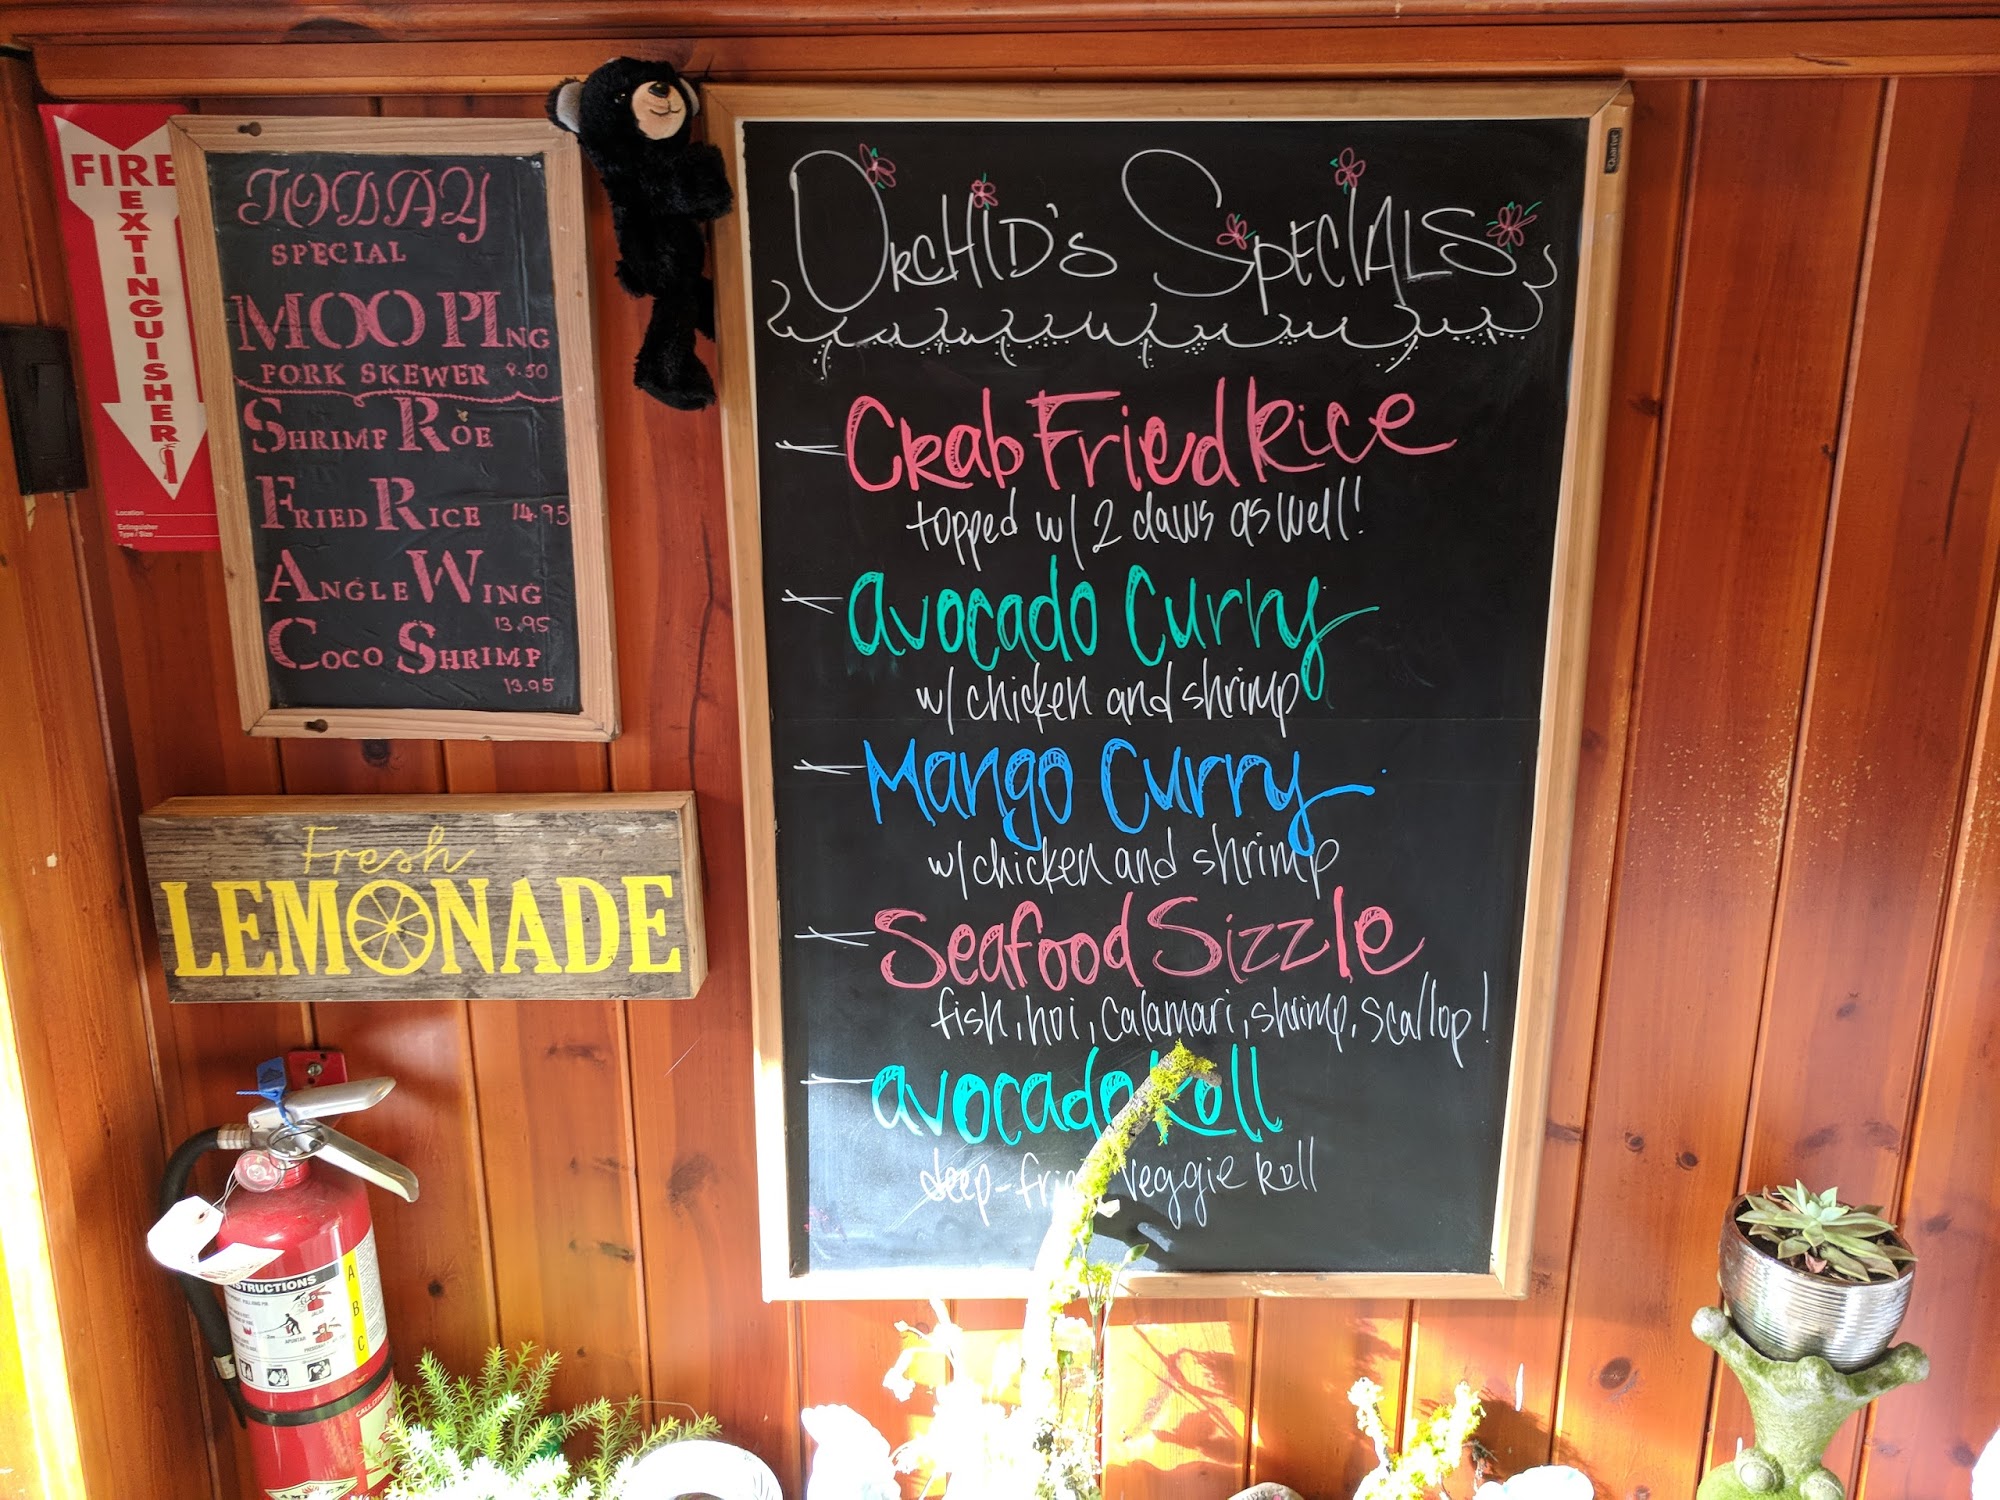 FIRE
EXTINGUISHER
Location
Extinguisher
Type / Size
TODAY
SPECIAL
MOO PING
PORK SKEWER 8.50
SHRIMP ROE
FRIED RICE 14.95
ANGLE WING
13.95
COCO SHRIMP
13.95
Fresh
LEMONADE
INSTRUCTIONS
A
B
C
Quartet
ORCHID'S SPECIALS
Crab Fried Rice
topped w/ 2 claws as well!
avocado Curry
w/ chicken and shrimp
Mango Curry
w/ chicken and shrimp
Seafood Sizzle
fish, hoi, calamari, shrimp, scallop!
avocado Roll
deep-fried veggie roll